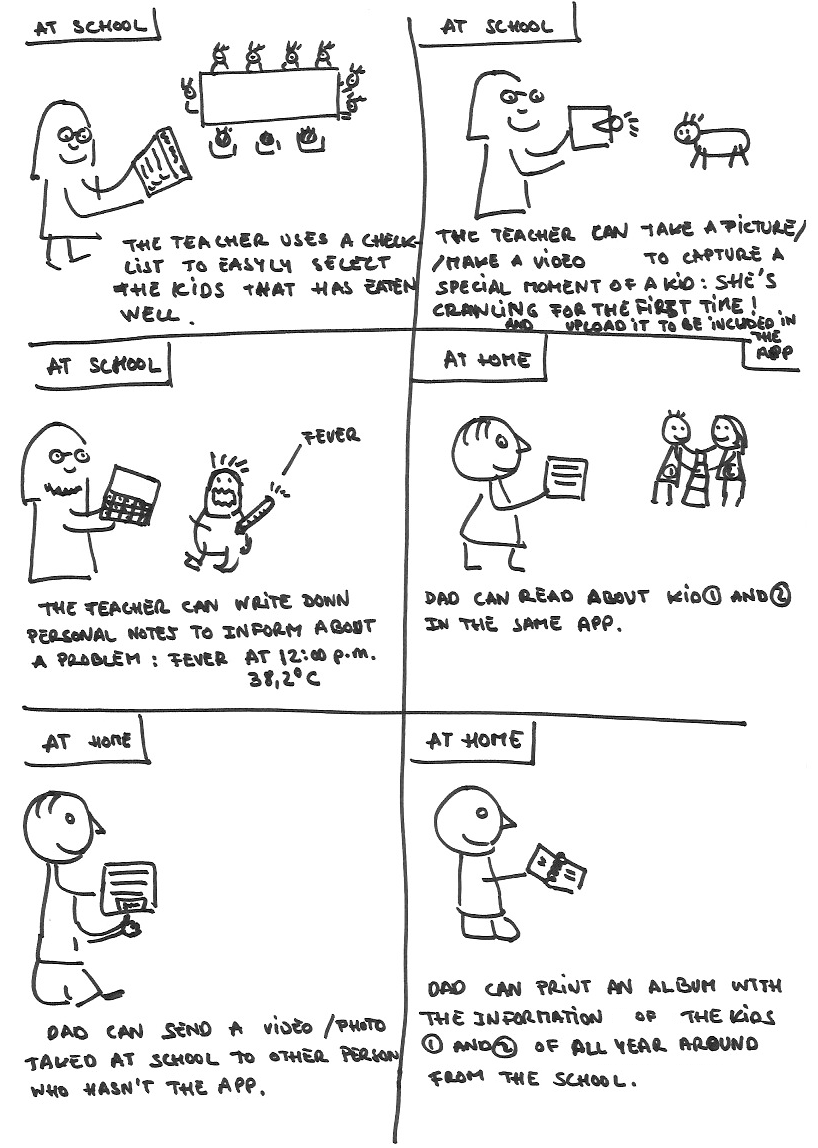 AT SCHOOL
THE TEACHER USES A CHECK-
LIST TO EASYLY SELECT
THE KIDS THAT HAS EATEN
WELL.
AT SCHOOL
THE TEACHER CAN TAKE A PICTURE/
/MAKE A VIDEO TO CAPTURE A
SPECIAL MOMENT OF A KID: SHE'S
CRAWLING FOR THE FIRST TIME!
AND UPLOAD IT TO BE INCLUDED IN
THE
APP
AT SCHOOL
FEVER
THE TEACHER CAN WRITE DOWN
PERSONAL NOTES TO INFORM ABOUT
A PROBLEM: FEVER AT 12:00 p.m.
38,2°C
AT HOME
1 2
DAD CAN READ ABOUT KID ① AND ②
IN THE SAME APP.
AT HOME
DAD CAN SEND A VIDEO/PHOTO
TAKED AT SCHOOL TO OTHER PERSON
WHO HASN'T THE APP.
AT HOME
DAD CAN PRINT AN ALBUM WITH
THE INFORMATION OF THE KIDS
① AND ② OF ALL YEAR AROUND
FROM THE SCHOOL.